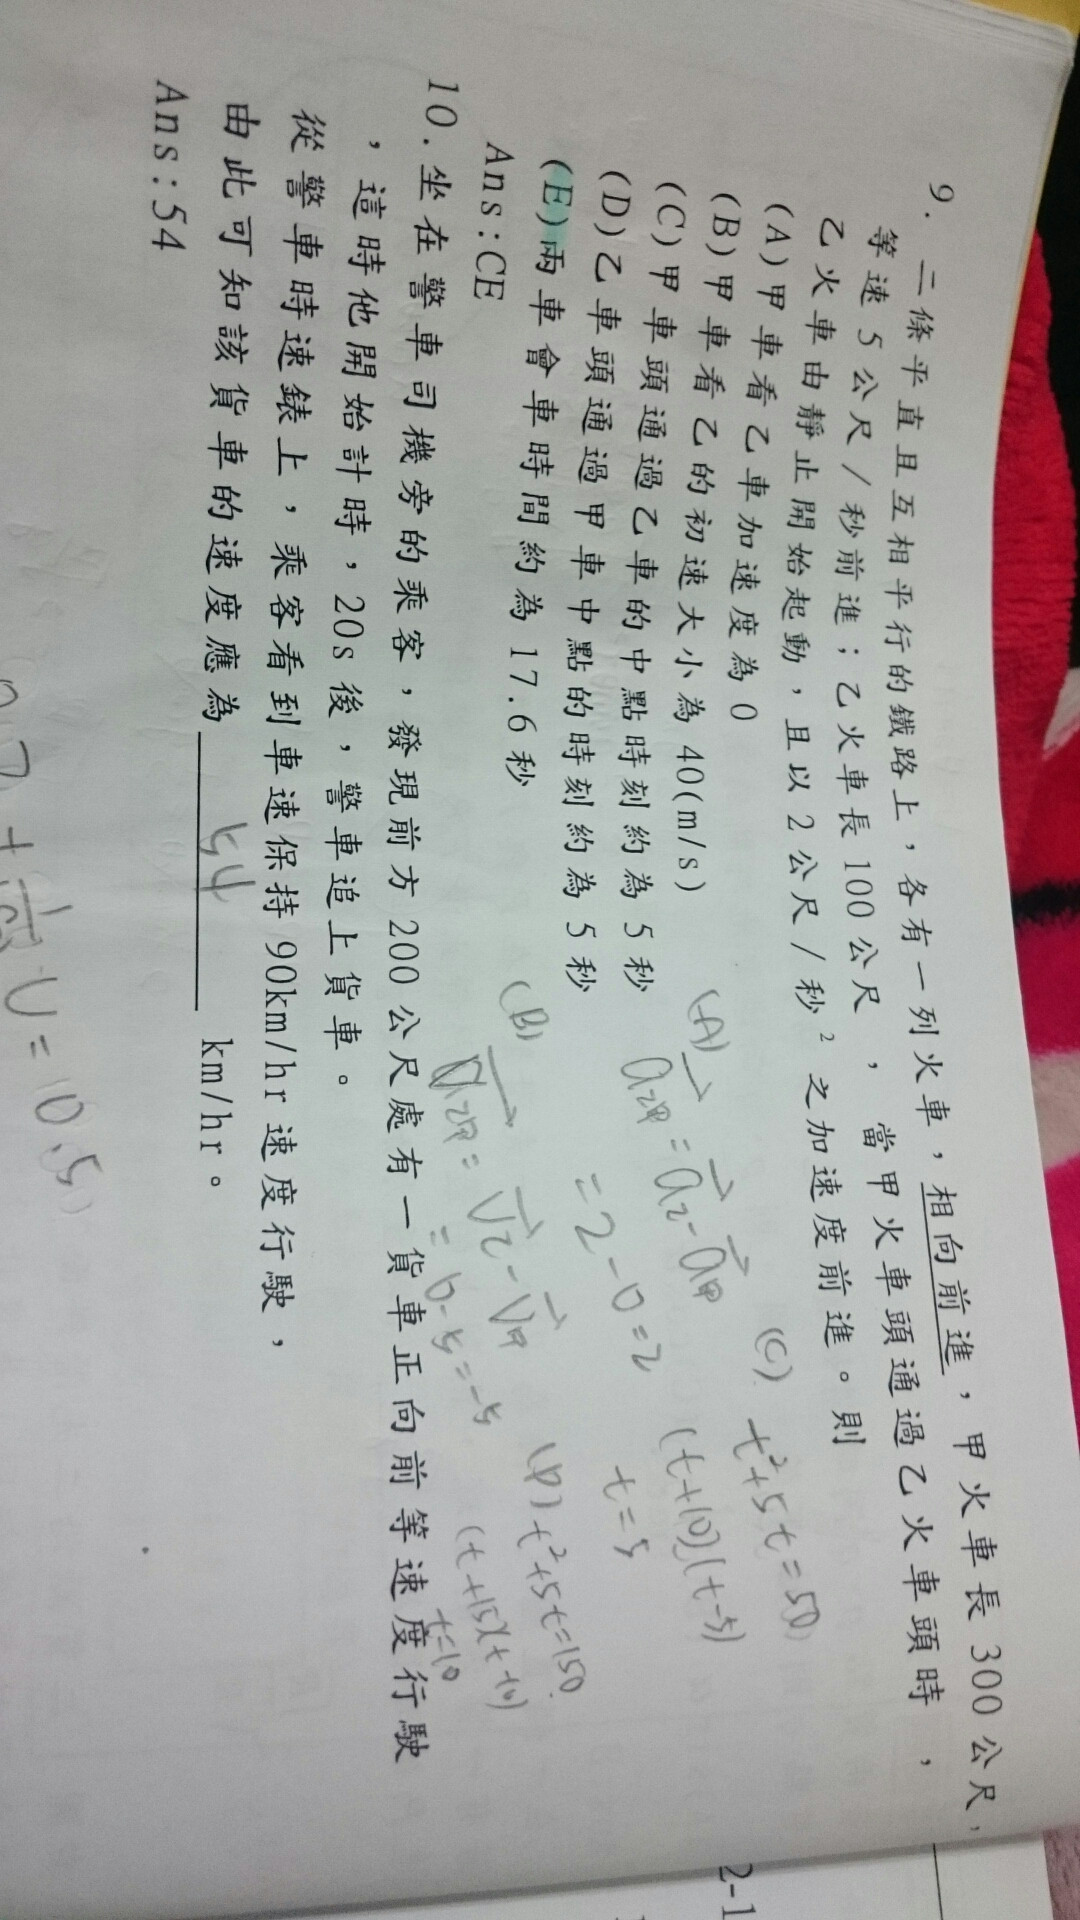 9. 二條平直且互相平行的鐵路上，各有一列火車，相向前進，甲火車長 300 公尺，
等速 5 公尺/秒前進；乙火車長 100 公尺，當甲火車頭通過乙火車頭時，
乙火車由靜止開始起動，且以 2 公尺/秒² 之加速度前進。則
(A)甲車看乙車加速度為 0
(B)甲車看乙的初速大小為 40(m/s)
(C)甲車頭通過乙車的中點時刻約為 5 秒
(D)乙車頭通過甲車中點的時刻約為 5 秒
(E)兩車會車時間約為 17.6 秒
Ans:CE
(A)
a乙甲 = a乙 - a甲
= 2 - 0 = 2
(B)
a乙甲 = V乙 - V甲
= 0 - 5 = -5
(C) t²+5t=50
(t+10)(t-5)
t=5
(D) t²+5t=150
t=10
10. 坐在警車司機旁的乘客，發現前方 200 公尺處有一貨車正向前等速度行駛
，這時他開始計時，20s 後，警車追上貨車。
從警車時速錶上，乘客看到車速保持 90km/hr 速度行駛，
由此可知該貨車的速度應為 54 km/hr。
Ans:54
2-1